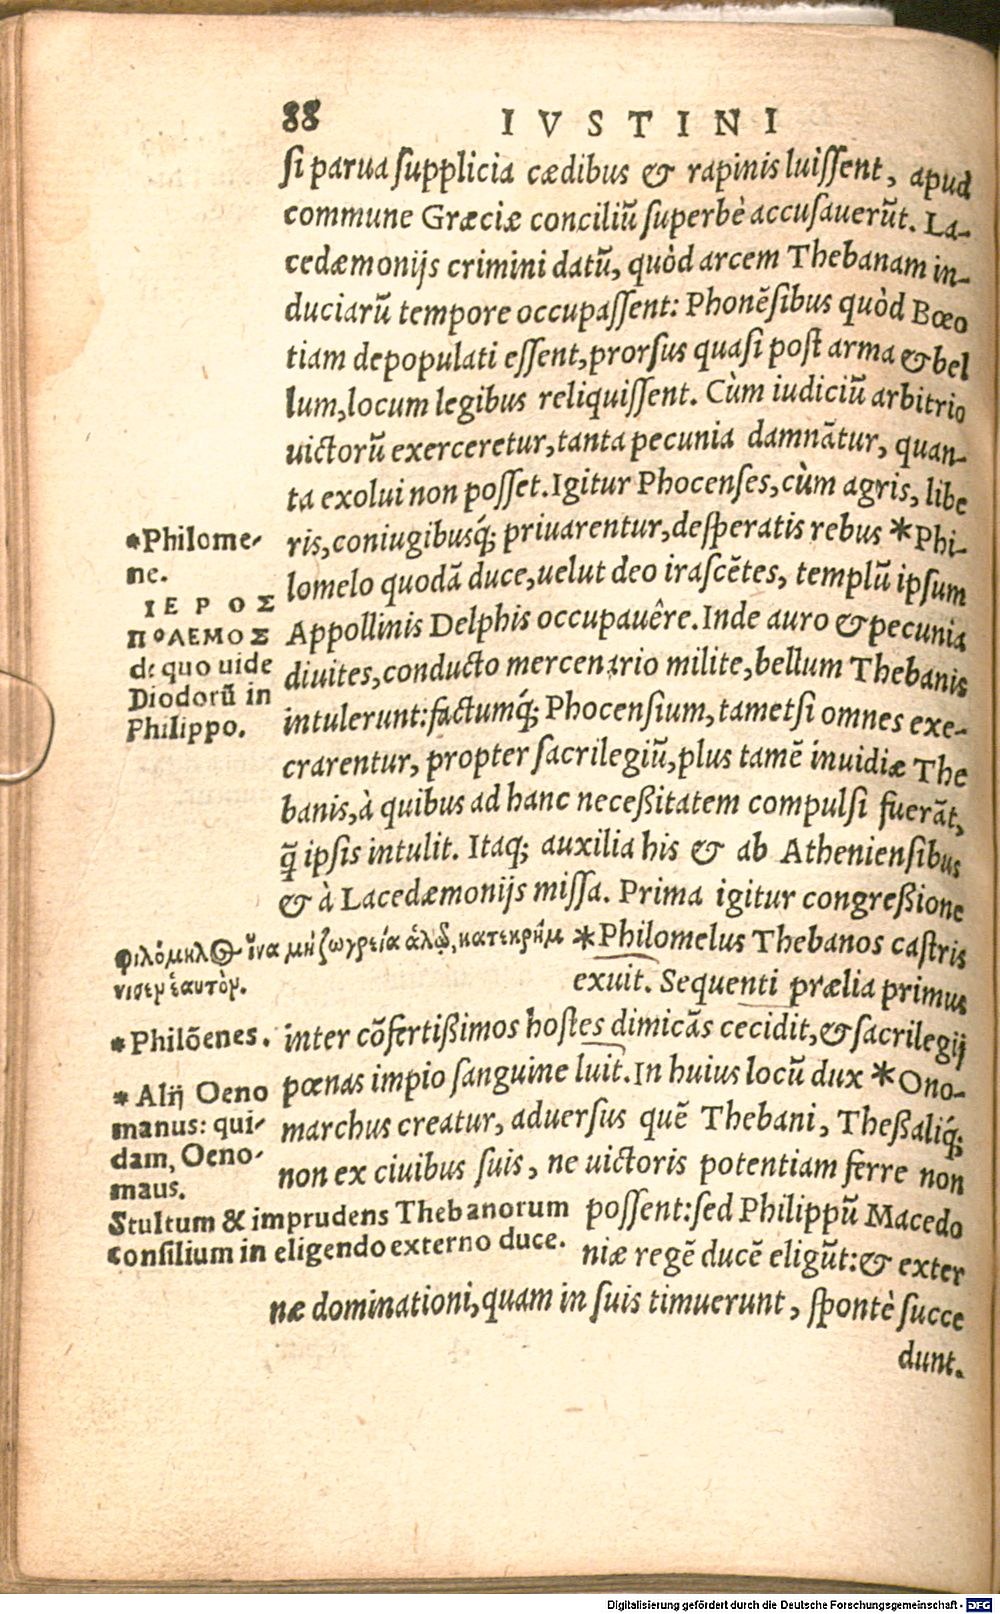 88 IVSTINI
si parua supplicia cædibus & rapinis luissent, apud
commune Græciæ conciliũ superbè accusauerũt. La-
cedæmonijs crimini datũ, quòd arcem Thebanam in-
duciarũ tempore occupassent: Phonẽsibus quòd Bœo
tiam depopulati essent, prorsus quasi post arma & bel
lum, locum legibus reliquissent. Cùm iudiciũ arbitrio
uictorũ exerceretur, tanta pecunia damnãtur, quan-
ta exolui non posset. Igitur Phocenses, cùm agris, libe
ris, coniugibusq́; priuarentur, desperatis rebus *Phi-
lomelo quodã duce, uelut deo irascẽtes, templũ ipsum
Appollinis Delphis occupauêre. Inde auro & pecunia
diuites, conducto mercenario milite, bellum Thebanis
intulerunt: factumq́; Phocensium, tametsi omnes exe-
crarentur, propter sacrilegiũ, plus tamẽ inuidiæ The
banis, à quibus ad hanc neceßitatem compulsi fuerãt,
q̃ ipsis intulit. Itaq; auxilia his & ab Atheniensibus
& à Lacedæmonijs missa. Prima igitur congreßione
*Philomelus Thebanos castris
exuit. Sequenti prælia primus
inter cõfertißimos hostes dimicãs cecidit, & sacrilegij
pœnas impio sanguine luit. In huius locũ dux *Ono-
marchus creatur, aduersus quẽ Thebani, Theßaliq́;
non ex ciuibus suis, ne uictoris potentiam ferre non
possent: sed Philippũ Macedo
niæ regẽ ducẽ eligũt: & exter
næ dominationi, quam in suis timuerunt, spontè succe
dunt.
*Philome-
ne.
ΙΕΡΟΣ
ΠΟΛΕΜΟΣ
de quo uide
Diodorũ in
Philippo.
φιλόμηλος ἵνα μὴ ζωγρεία ἁλῷ, κατεκρήμ
νισεν ἑαυτὸν.
*Philõenes.
*Alij Oeno
manus: qui-
dam, Oeno-
maus.
Stultum & imprudens Thebanorum
consilium in eligendo externo duce.
Digitalisierung gefördert durch die Deutsche Forschungsgemeinschaft - DFG